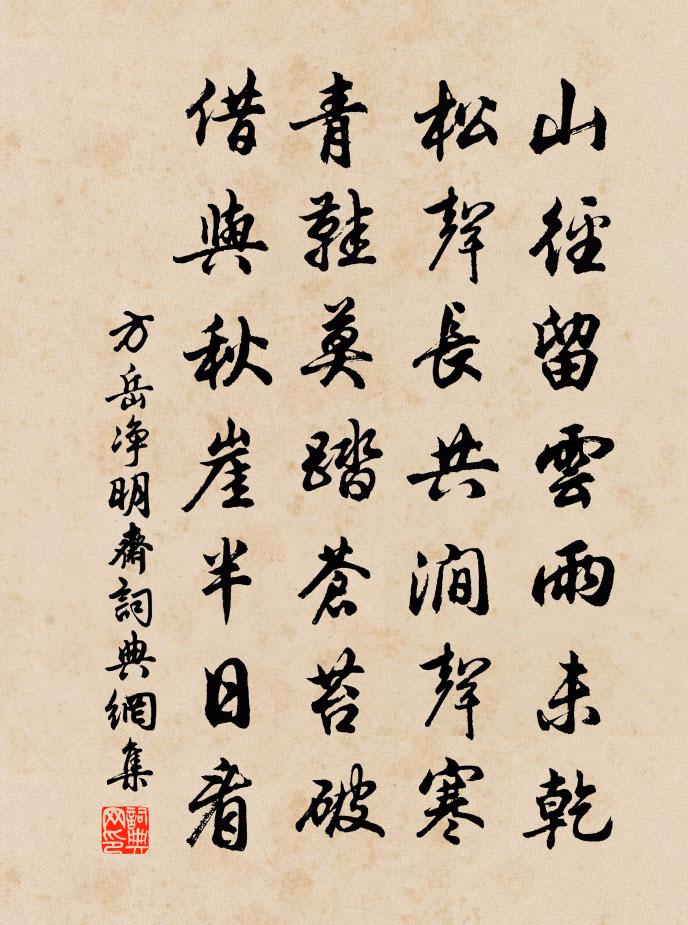 山徑留雲雨未乾
松聲長共澗聲寒
青鞋莫踏蒼苔破
借與秋崖半日看
方岳淨明齋詞典網集
詞典网印